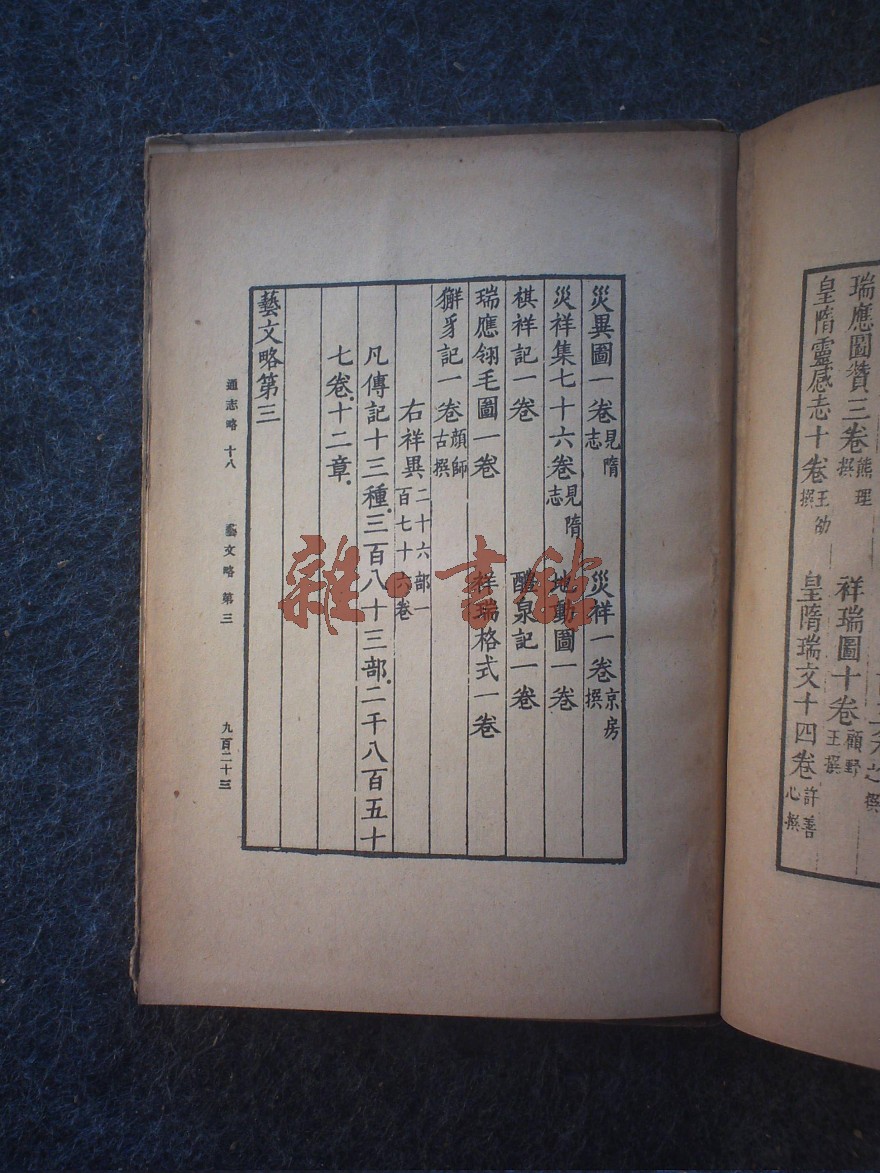 瑞應圖贊三卷熊理撰 祥瑞圖十卷顧野王撰
皇隋靈感志十卷王劭撰 皇隋瑞文十四卷許善心撰
災異圖一卷見隋志 災祥一卷京房撰
災祥集七十六卷見隋志 地動圖一卷
祺祥記一卷 醴泉記一卷
瑞應翎毛圖一卷 祥瑞格式一卷
獬豸記一卷顏師古撰
右祥異二十六部一百七十六卷
凡傳記十三種三百八十三部二千八百五十
七卷十二章
藝文略第三
通志略 十八 藝文略 第三 九百二十三
雜·書館